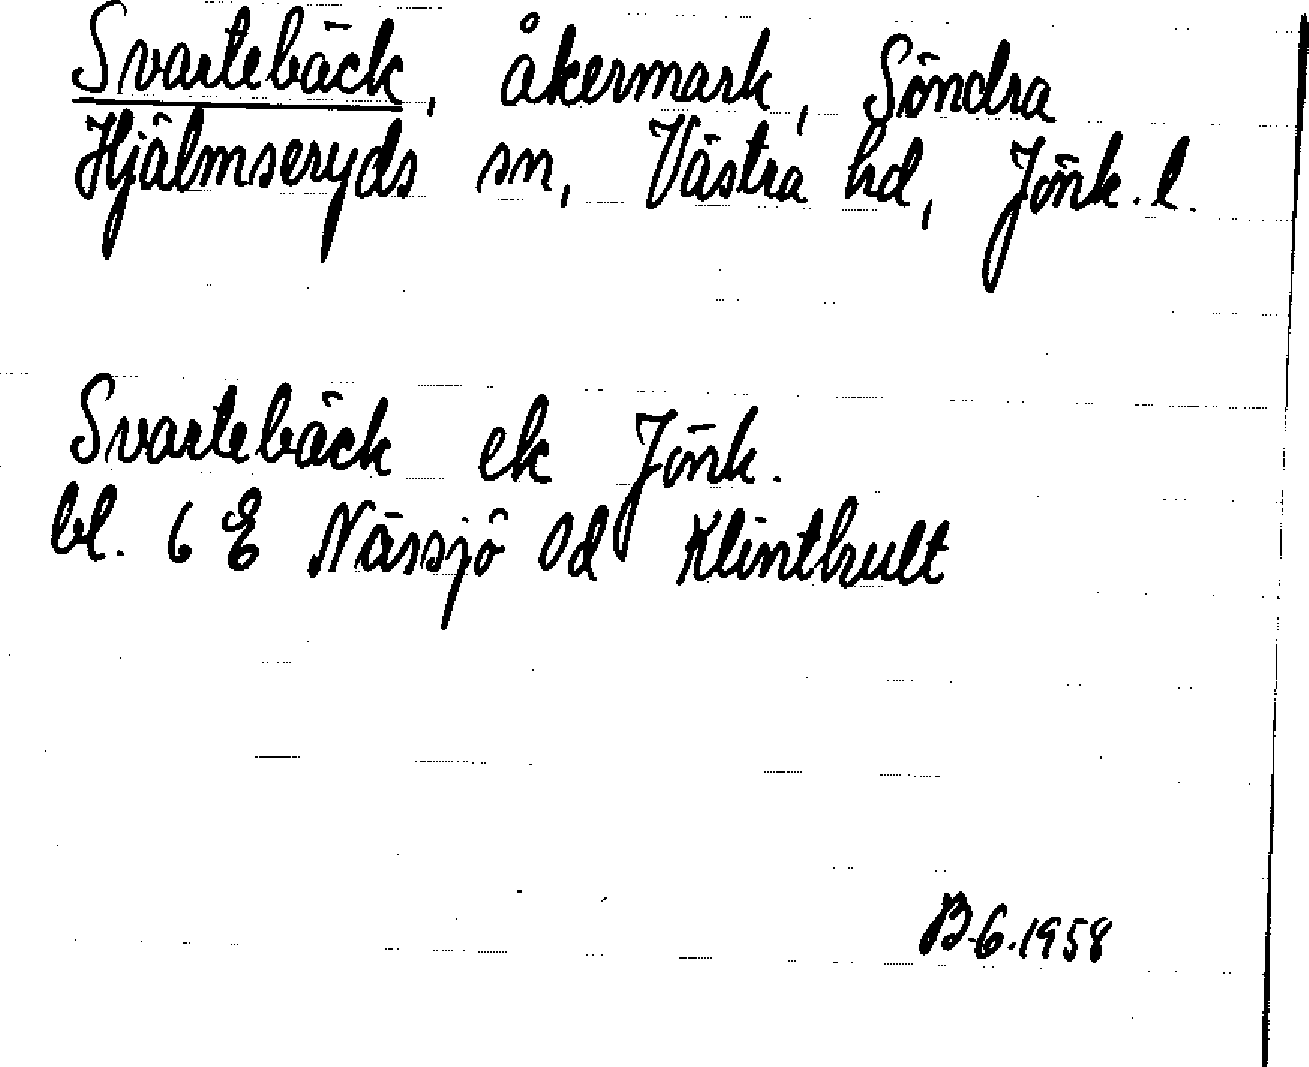 Svartebäck, åkermark, Södra
Hjälmseryds sn, Västra hd, Jönk. l.
Svartebäck ek Jönk.
bl. 6 E Nässjö 0d Klinthult
B 6. 1958